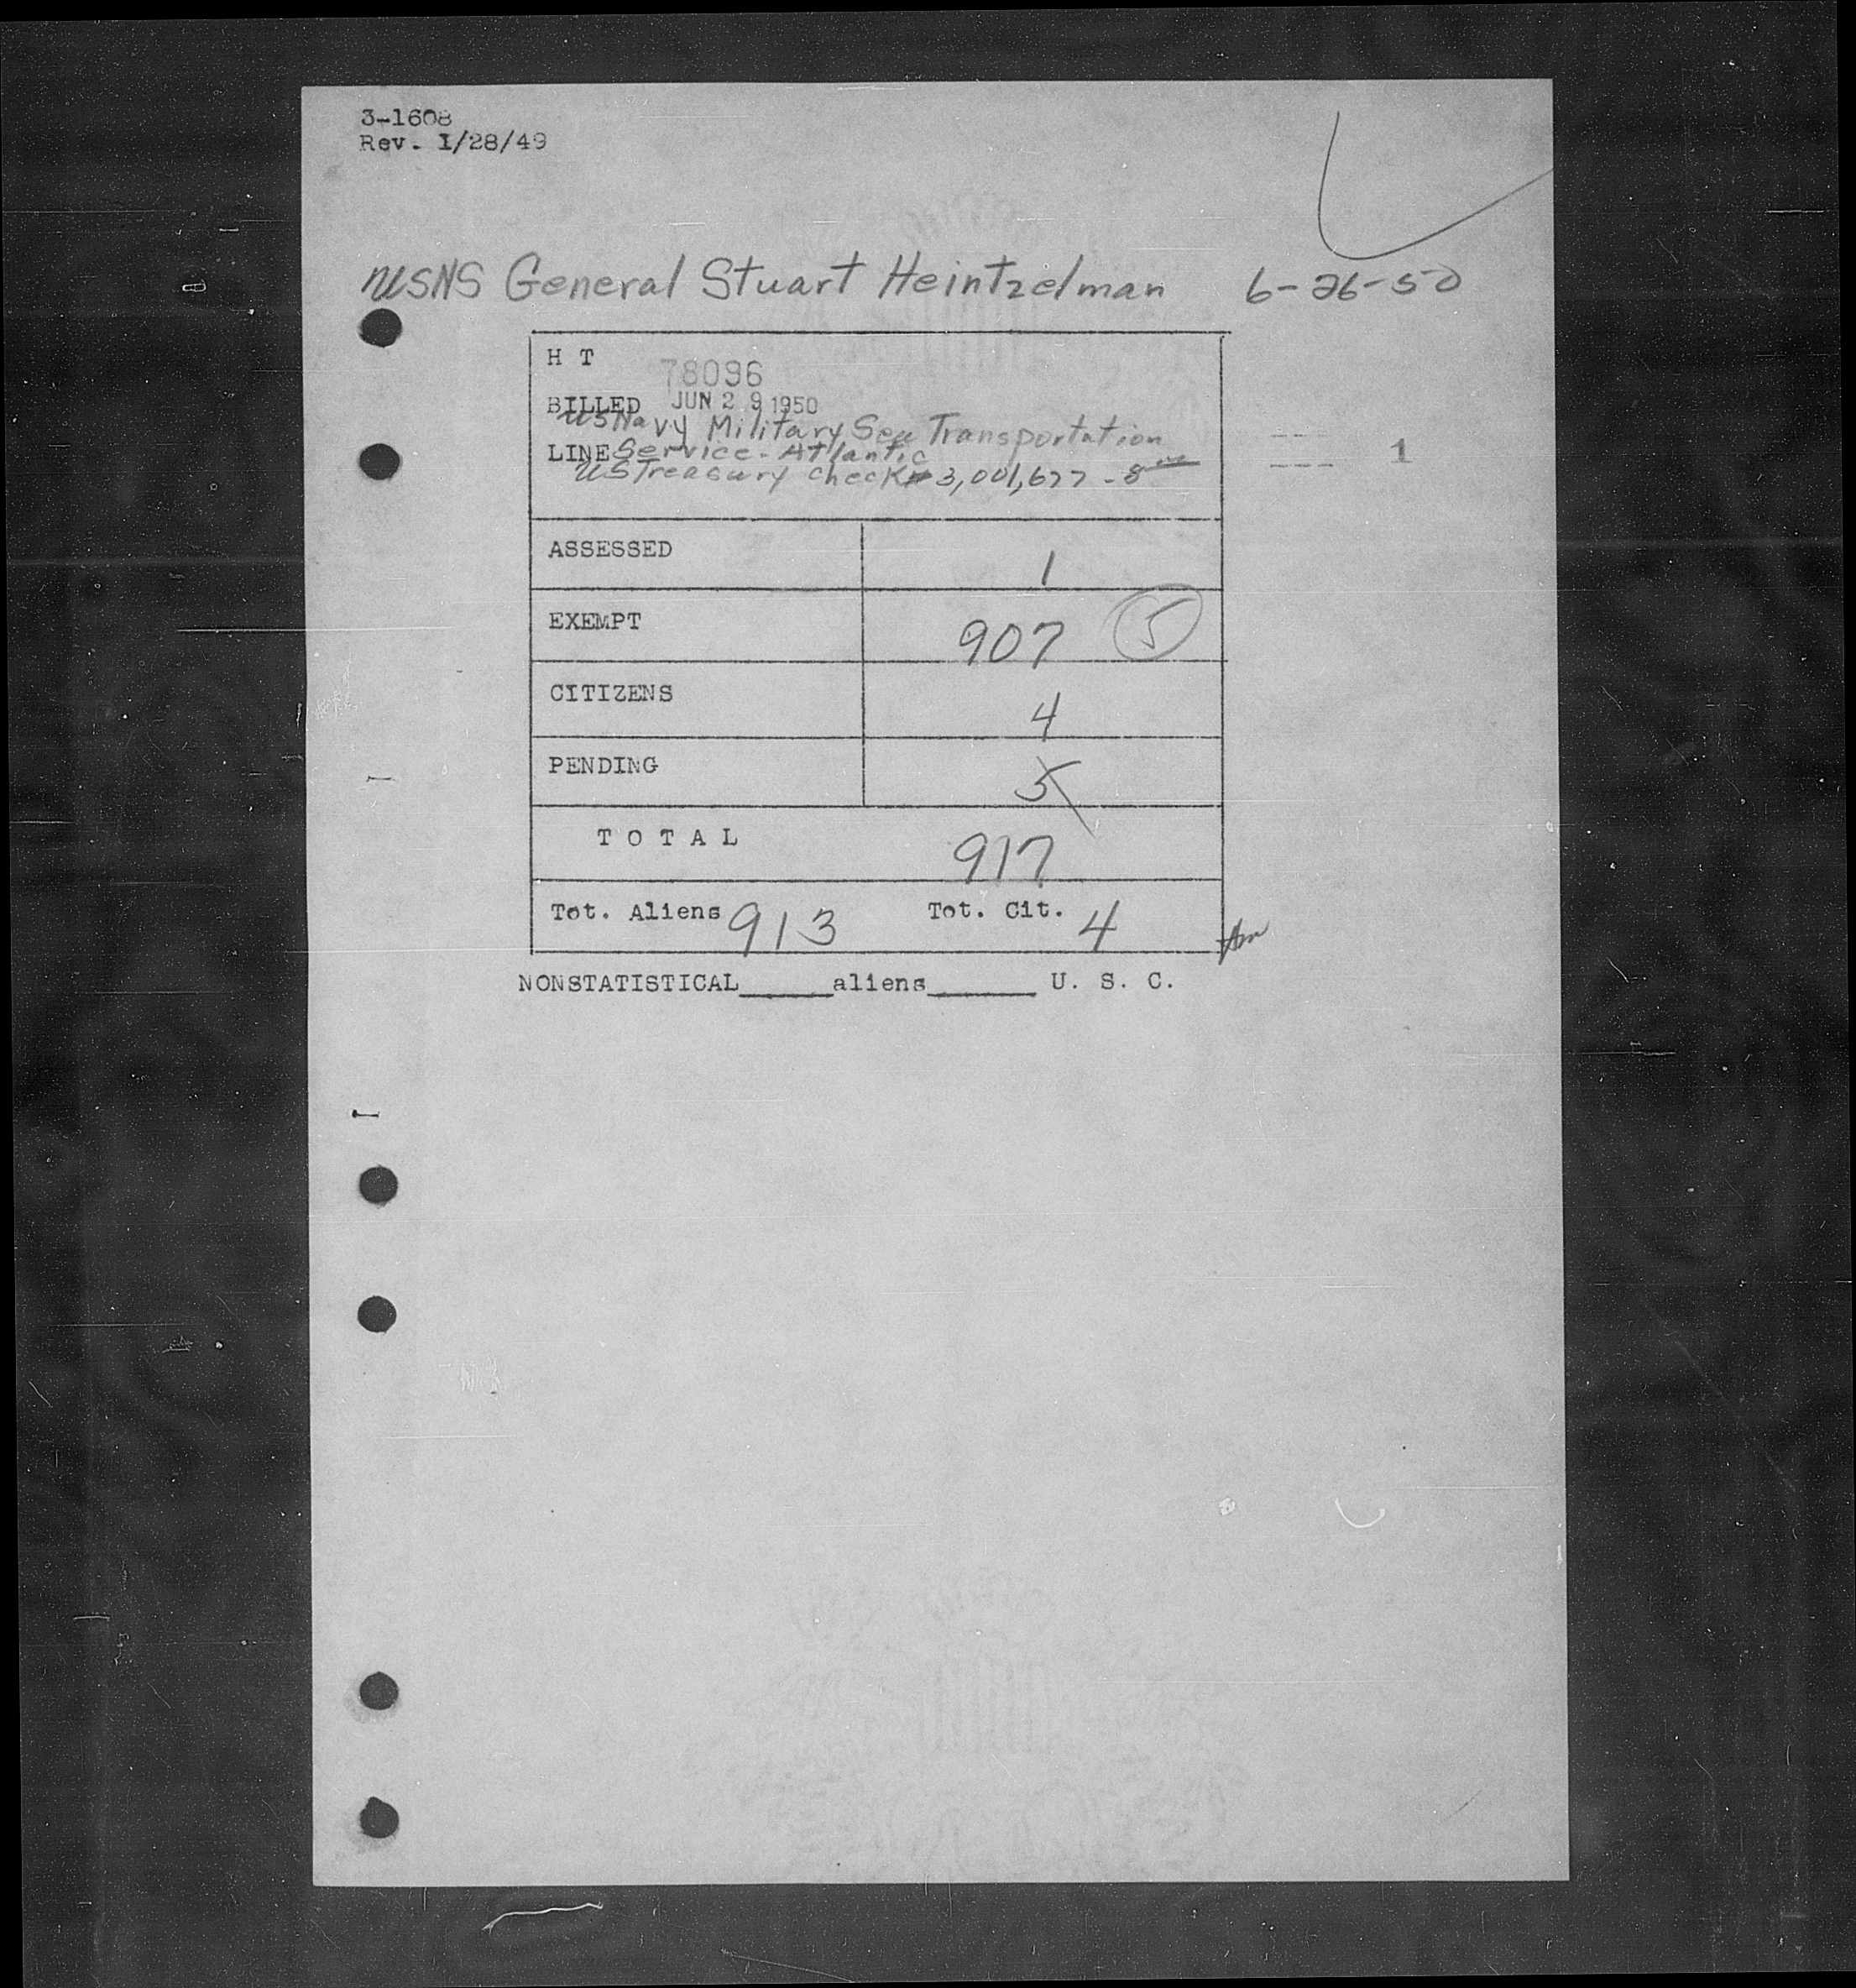 3-1608
Rev. 1/28/49
USNS General Stuart Heintzelman 6-26-50
H T
78096
BILLED JUN 29 1950
US Navy Military Sea Transportation
LINE Service-Atlantic
US Treasury check # 3,001,677 - 8
--- 1
---
ASSESSED 1
EXEMPT 907 5
CITIZENS 4
PENDING 5
T O T A L 917
Tot. Aliens 913 Tot. Cit. 4
NONSTATISTICAL_____aliens______ U. S. C.